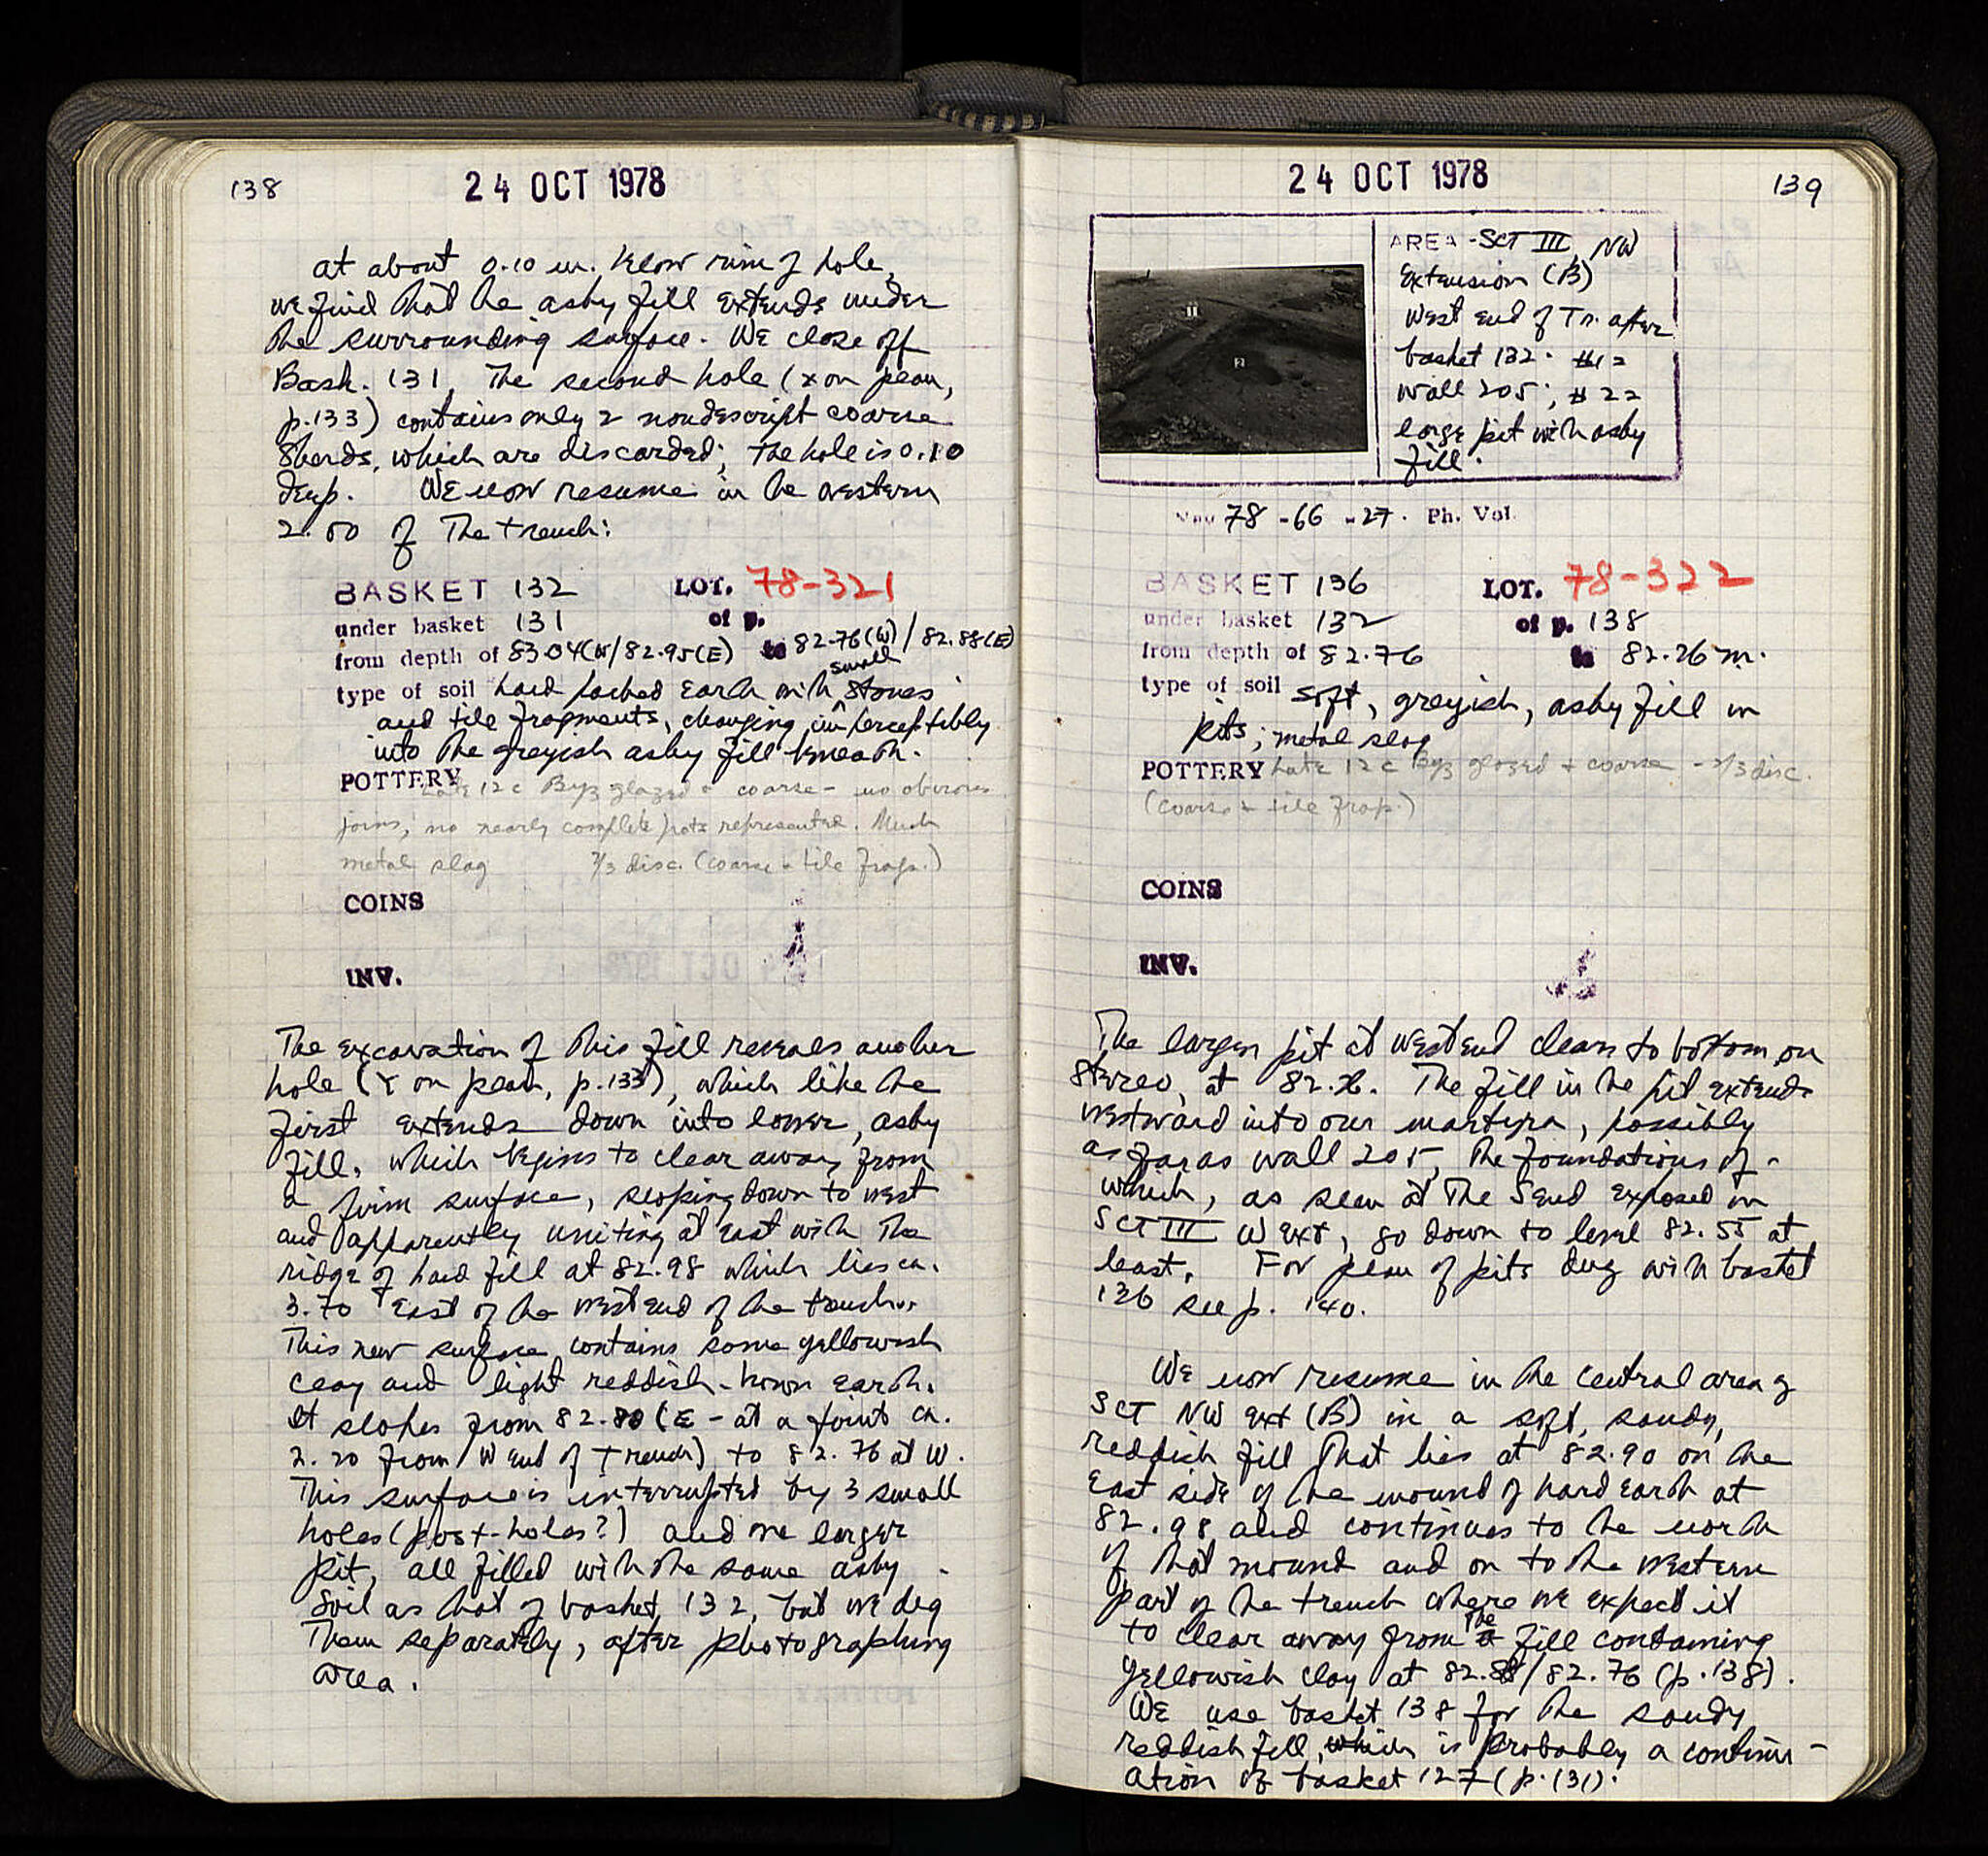 138
24 OCT 1978
at about 0.10 m. below rim of hole,
we find that the ashy fill extends under
the surrounding surface. We close off
Bask. 131. The second hole (x on plan,
p.133) contains only 2 nondescript coarse
sherds, which are discarded; the hole is 0.10
deep. We now resume in the western
2.00 of the trench:
BASKET 132 LOT. 78-321
under basket 131 of p.
from depth of 83.04(W/82.95(E) to 82.76(W)/82.88(E)
type of soil hard packed earth with small stones
and tile fragments, changing imperceptibly
into the greyish ashy fill beneath.
POTTERY Late 12 c Byz glazed + coarse - no obvious
joins, no nearly complete pots represented. Much
metal slag 2/3 disc. (coarse + tile frags.)
COINS
INV.
The excavation of this fill reveals another
hole (Y on plan, p.133), which like the
first extends down into lower, ashy
fill, which begins to clear away from
a firm surface, sloping down to west
and apparently uniting at east with the
ridge of hard fill at 82.98 which lies ca.
3.70 east of the west end of the trench.
This new surface contains some yellowish
clay and light reddish-brown earth.
It slopes from 82.88 (E - at a point ca.
2.20 from W end of trench) to 82.76 at W.
This surface is interrupted by 3 small
holes (post-holes?) and one larger
pit, all filled with the same ashy
soil as that of basket 132, but we dig
them separately, after photographing
area.
24 OCT 1978
139
AREA - SCT III, NW
Extension (B)
West end of Tr. after
basket 132. #1=
wall 205; #2=
large pit with ashy
fill.
78-66-27. Ph. Vol.
BASKET 136 LOT. 78-322
under basket 132 of p. 138
from depth of 82.76 to 82.26 m.
type of soil soft, greyish, ashy fill in
pits; metal slag
POTTERY Late 12 c Byz glazed + coarse - 2/3 disc.
(coarse + tile frag.)
COINS
INV.
The larger pit at west end clears to bottom, on
stereo, at 82.26. The fill in the pit extends
westward into our martyra, possibly
as far as wall 205, the foundations of
which, as seen at the S end exposed in
SCT III W ext, go down to level 82.55 at
least. For plan of pits dug with basket
136 see p. 140.
We now resume in the central area of
SCT NW ext (B) in a soft, sandy,
reddish fill that lies at 82.90 on the
east side of the mound of hard earth at
82.98 and continues to the north
of that mound and on to the western
part of the trench where we expect it
to clear away from the fill containing
yellowish clay at 82.88/82.76 (p.138).
We use basket 138 for the sandy
reddish fill, which is probably a continu-
ation of basket 127 (p.131).